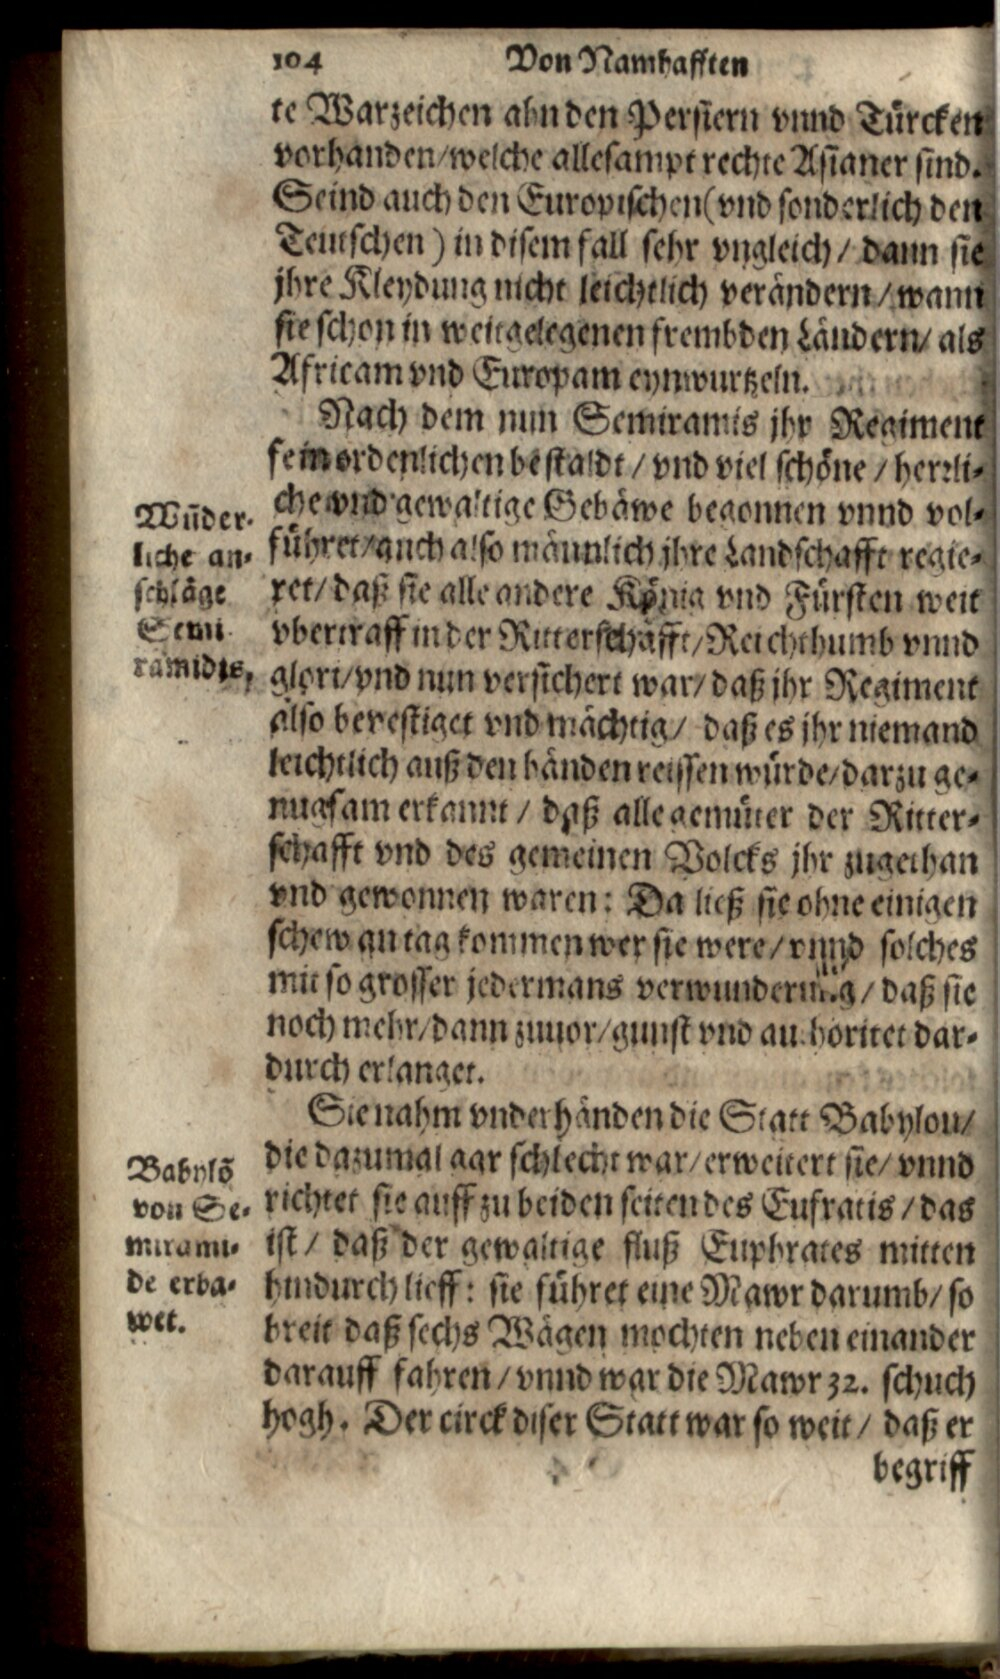 104 Von Namhafften
te Warzeichen ahn den Persiern vnnd Türcken
vorhanden/welche allesampt rechte Asianer sind.
Seind auch den Europischen(vnd sonderlich den
Teutschen) in disem fall sehr vngleich/ dann sie
jhre Kleydung nicht leichtlich verändern/wann
sie schon in weitgelegenen frembden Ländern/ als
Africam vnd Europam eynwurtzeln.
Nach dem nun Semiramis jhr Regiment
fein ordenlichen bestaldt/ vnd viel schöne/ herrli-
che vnd gewaltige Gebäwe begonnen vnnd vol-
führet/auch also männlich jhre Landschafft regie-
ret/ daß sie alle andere König vnd Fürsten weit
vbertraff in der Ritterschafft/Reichthumb vnnd
glori/vnd nun versichert war/ daß jhr Regiment
also bevestiget vnd mächtig/ daß es jhr niemand
leichtlich auß den händen reissen würde/darzu ge-
nugsam erkannt/ daß alle gemüter der Ritter-
schafft vnd des gemeinen Volcks jhr zugethan
vnd gewonnen waren: Da ließ sie ohne einigen
schew an tag kommen wer sie were/vnnd solches
mit so grosser jedermans verwunderung/ daß sie
noch mehr/dann zuuor/gunst vnd authoritet dar-
durch erlanget.
Sie nahm vnder händen die Statt Babylon/
die dazumal gar schlecht war/erweitert sie/ vnnd
richtet sie auff zu beiden seiten des Eufratis/ das
ist/ daß der gewaltige fluß Euphrates mitten
hindurch lieff: sie führet eine Mawr darumb/ so
breit daß sechs Wägen mochten neben einander
darauff fahren/vnnd war die Mawr 32. schuch
hogh. Der circk diser Statt war so weit/ daß er
begriff
Wūder-
liche an-
schläge
Semi
ramidis,
Babylō
von Se-
mirami-
de erba-
wet.